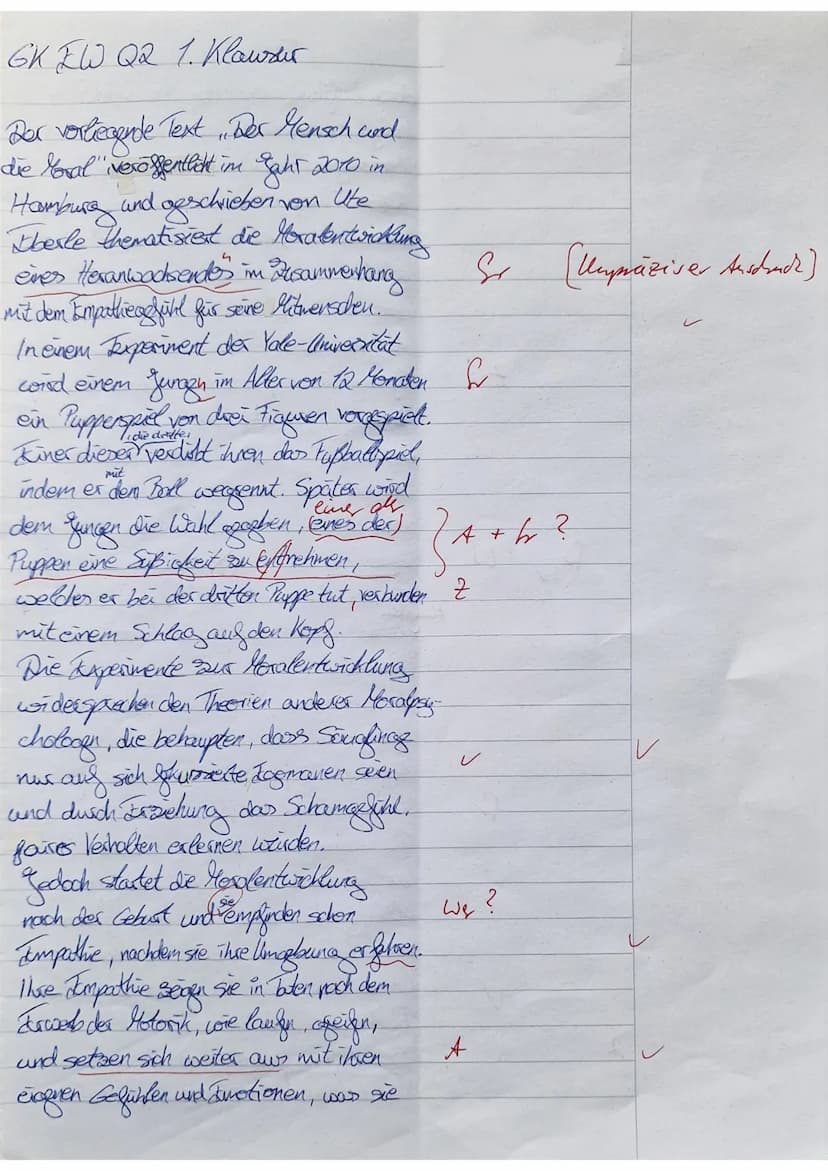 GK EW Q2 1. Klausur
Der vorliegende Text „Der Mensch und
die Moral" veröffentlicht im Jahr 2010 in
Hamburg und geschrieben von Ute
Eberle thematisiert die Moralentwicklung
eines Heranwachsendes im Zusammenhang Gr (Unpräziser Ausdruck)
mit dem Empathiegefühl für seine Mitmenschen. ✓
In einem Experiment der Yale-Universität
wird einem Jungen im Alter von 12 Monaten Gr
ein Puppenspiel von drei Figuren vorgespielt.
die dritte,
Einer dieser verdirbt ihnen das Fußballspiel,
mit
indem er dem Ball wegrennt. Später wird
einer der
dem Jungen die Wahl gegeben, (eines der)
Puppen eine Süßigkeit zu entnehmen, A + Gr ?
welches er bei der dritten Puppe tut, verbunden Z
mit einem Schlag auf den Kopf.
Die Experimente zur Moralentwicklung
widersprechen den Theorien anderer Moralpsy-
chologen, die behaupten, dass Säuglinge ✓
nur auf sich fokussierte Egomanen seien ✓
und durch Erziehung das Schamgefühl,
faires Verhalten erlernen würden.
Jedoch startet die Moralentwicklung
sie
nach der Geburt und empfinden schon Wer ?
Empathie, nachdem sie ihre Umgebung erfahren. ✓
Ihre Empathie zeigen sie in Taten nach dem
Erwerb der Motorik, wie laufen, greifen,
und setzen sich weiter aus mit ihren A ✓
eigenen Gefühlen und Emotionen, was sie